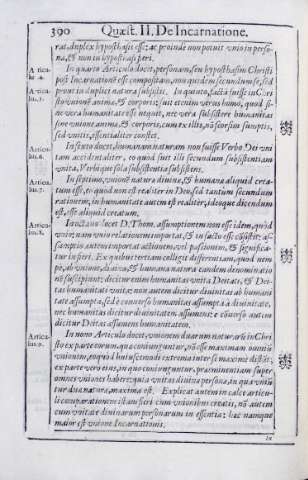 390 Quæst. II. De Incarnatione.
rat, duplex hypostasis esset: ac proinde non potuit vnio in perso-
na, & non in hypostasi fieri.
Artícu-
lus. 4.
In quarto Articulo docet, personam, seu hypostasim Christi
post Incarnationē esse compositam, non quidem secundum se, sed
prout in duplici natura subsistit. In quinto, factā fuisse in Chri
Articu-
lus. 5.
sto vnionē animæ, & corporis: fuit etenim verus homo, quod si-
ne vera humanitate esse nequit, nec vera subsistere humanitas
sine vnione animæ, & corporis, cum ex illis, nō seorsim sumptis,
sed vnitis, essentialiter constet.
Articu-
lus. 6.
In sexto docet, humanam naturam non fuisse Verbo Dei vni
tam accidentaliter, eo quod fuit illi secundum subsistentiam
vnita, Verbique sola subsistentia subsistens.
Articu-
lus. 7.
In septimo, vnionē natura diuinæ, & humanæ aliquid crea-
tum esse, eo quod non est realiter in Deo, sed tantum secundum
rationem, in humanitate autem est realiter, ideoque dicendum
est, esse aliquid creatum.
Articu-
lus. 8.
In octauo docet D. Thom. assumptionem non esse idem, quòd
vnio; nam vnio relationem importat, & in facto esse consistit: as-
sumptio autem importat actionem, vel passionem, & significa-
tur in fieri. Ex quibus tertiam colligit differentiam, quod nem
pe, ab vnione, diuina, & humana natura eandem denominatio
nē suscipiunt; dicitur enim humanitas vnita Deitati, & Dei-
tas humanitati vnita; non autem dicitur diuinitas ab humani
tate assumpta, sed è conuerso humanitas assumpta à diuinitate,
nec humanitas dicitur diuinitatem assumens: è conuerso autem
dicitur Deitas assumens humanitatem.
Articu-
lus. 9.
In nono Articulo docet, vnionem duarum naturarū in Chri
sto ex parte eorum, quæ coniunguntur, nō esse maximam omniū
vnionum, eo quòd huiuscemodi extrema inter se maximè distēt;
ex parte vero eius, in quo coniunguntur, præeminentiam super
omnes vniones habere; quia vnitas diuinæ personæ, in qua vniūt
tur duæ naturæ, maxima est. Explicat autem in calce articu-
li comparationem istam fieri cum vnionibus creatis, nō autem
cum vnitate diuinarum personarum in essentia: hæc namque
maior est vnione Incarnationis.
In